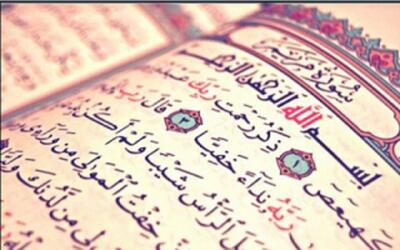 سُورَةُ مَرْيَمَ
بِسْمِ اللَّهِ الرَّحْمَٰنِ الرَّحِيمِ
كٓهيعٓصٓ ١ ذِكْرُ رَحْمَتِ رَبِّكَ
رَبَّهُ نِدَآءً خَفِيًّا ٣ قَالَ رَبِّ
ٱلرَّأْسُ شَيْبًا وَلَمْ أَكُنۢ
خِفْتُ ٱلْمَوَٰلِىَ مِن وَرَآءِى
مِن لَّدُنكَ